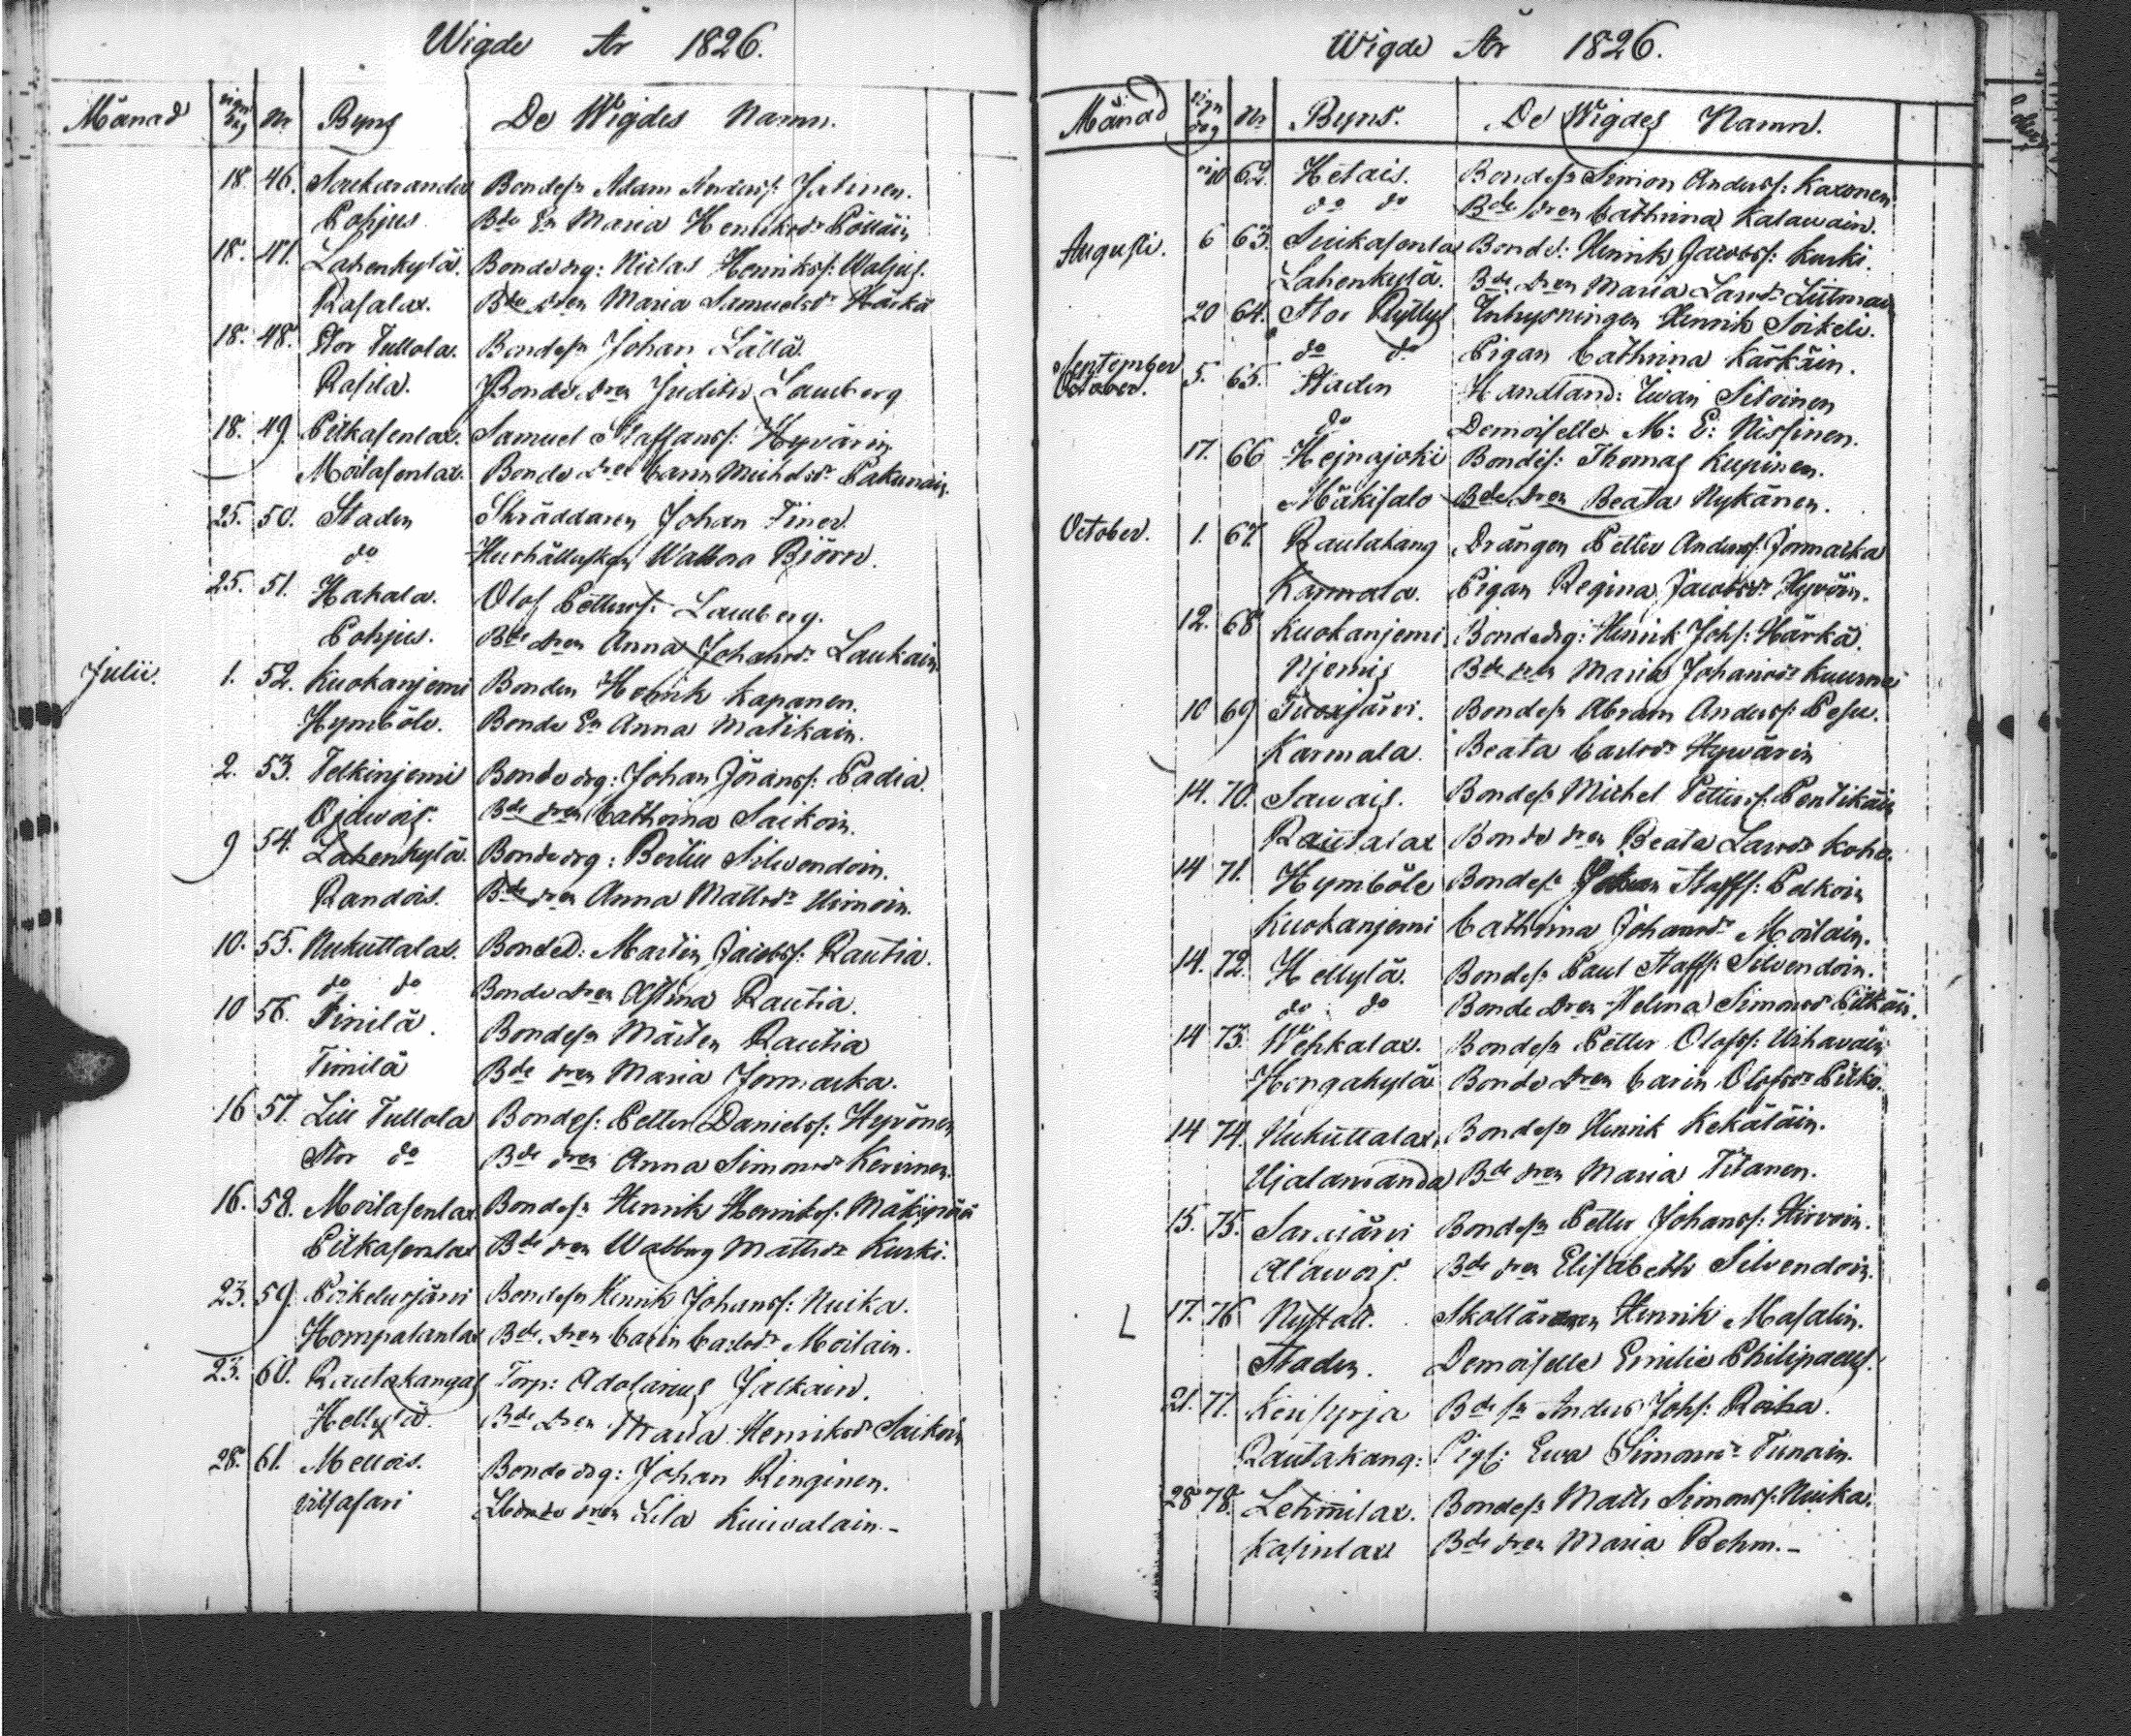 Wigde År 1826.
Månad Vign dag Nr Byns De Wigdes Namn.
18. 46. Bondesn Adam Anderss: Jatinen.
Pohjus Bde En Maria Henriksdr Pölläin
18. 47. Lahenkylä. Bonde drg: Niclas Henrikss: Waljus.
Rasalax. Bde dren Maria Samuelsdr Härkä
18. 48. Stor Tullola. Bondesn Johan Lällä.
Rasila. Bonde dren Judith Lauberg
18. 49. Pitkasenlax. Samuel Staffanss: Hyvärin
Moilasenlax. Bonde dren Carin Michelsdr Pakunain.
25. 50. Staden Skräddaren Johan Finer.
do Hushållerskan Walbora Björn.
25. 51. Hakala. Olof Petterss: Lauberg.
Pohjus. Bde dren Anna Johansdr Laukain
Julii. 1. 52. Kuokanjemi Bonden Henrik Kapanen.
Hymböle. Bonde En Anna Matikain.
2. 53. Telkinjemi Bonde drg: Johan Jöranss: Padia.
Ojawois. Bde dren Cathrina Saikoin.
9 54. Lahenkylä. Bonde drg: Bertill Silvendoin.
Randois. Bde dren Anna Mattsdr Hirnoin.
10. 55. Nukuttalax. Bonded: Martin Jacobss: Rautia.
do do Bonde dren Christina Rautia.
10 56. Tinilä. Bondesn Mårten Rautia
Tinilä Bde dren Maria Jormacka.
16 57. Lill Tullola Bondes: Petter Danielss: Hyvönen
Stor do Bde dren Anna Simonsdr Kervinen.
16. 58. Moilasenlax Bondesn Henrik Henrikss: Mäkipää
Pitkasenlax Bde dren Walborg Mattsdr Kurki.
23. 59. Pirkelusjärvi Bondesn Henrik Johanss: Nuika.
Hompalanlax Bde. dren Carin Carlsdr Moilain.
23. 60. Rautakangas Torp: Adolarius Jalkain.
Hellylä. Bde dren Maria Henriksdr Saikoin
28. 61. Mellois. Bonde drg: Johan Ringinen.
Vilsasari dren Lisa Kuivalain.-
Wigde År 1826.
Månad Vign dag Nr Byns. De Wigdes Namn.
30 62. Hetais. Bondesn Simon Anderss: Kaxonen
do do Bde dren Cathrina Kalawain.
Augusti. 6 63. Suikasenlax Bonde: Henrik Jacobss: Kurki.
Lahenkylä. Bde. dren Maria Larsdr Litmain
20 64. Stor Ryttys Inhysningen Henrik Soikeli.
do do Pigan Cathrina Kärkäin.
September
October. 5. 65. Staden Handland: Iwan Siloinen
do Demoiselle M: E: Nissinen.
17. 66 Hejnajoki Bondes: Thomas Kupinen.
Mäkisalo Bde. dren Beata Nykänen.
October. 1. 67. Rautakang Drängen Petter Anderss: Jormacka
Karmala. Pigan Regina Jacobsdr Hyvöin.
12. 68 Kuokanjemi. Bonde drg: Henrik Johs: Härkä.
Njemis Bde dren Maria Johansdr Kuurnei
10 69 Tuoxjärvi. Bondesn Abram Anderss: Pesu.
Karmala. Beata Carlsdr Hyvärin
14. 70. Sawais. Bondesn Michel Petterss: Pentikäin
Rautalax Bonde dren Beata Larsdr Koho.
14 71. Hymböle Bondesn Johan Staffs: Pelkoin
Kuokanjemi Cathrina Johansdr Moilain.
14. 72. Hellylä. Bondesn Paul Staffs: Silvendoin.
do do Bonde dren Helena Simonsdr Pitkäin.
14 73. Wehkalax. Bondesn Petter Olofss: Uihavain
Hongakylä Bonde dren Carin Olofsdr Pitko.
14 74. Nukuttalax. Bondesn Henrik Kekäläin.
Ujalanranda Bde dren Maria Titanen.
15. 75. Saruijärvi Bondesn Petter Johanss: Hirvoin.
Alawois. Bde dren Elisabeth Silvendoin.
17. 76 Nystatt. Skollären Henrik Masalin.
Staden. Demoiselle Emilie Philipaeus.
21. 77. Kerisyrja Bde sn Anders Johs: Roiha.
Rautakang: Pig: Ewa Simonsdr Tunain.
28 78. Lehmilax. Bondesn Matts Simonss: Nuika.
Kasinlax Bde dren Maria Behm.-